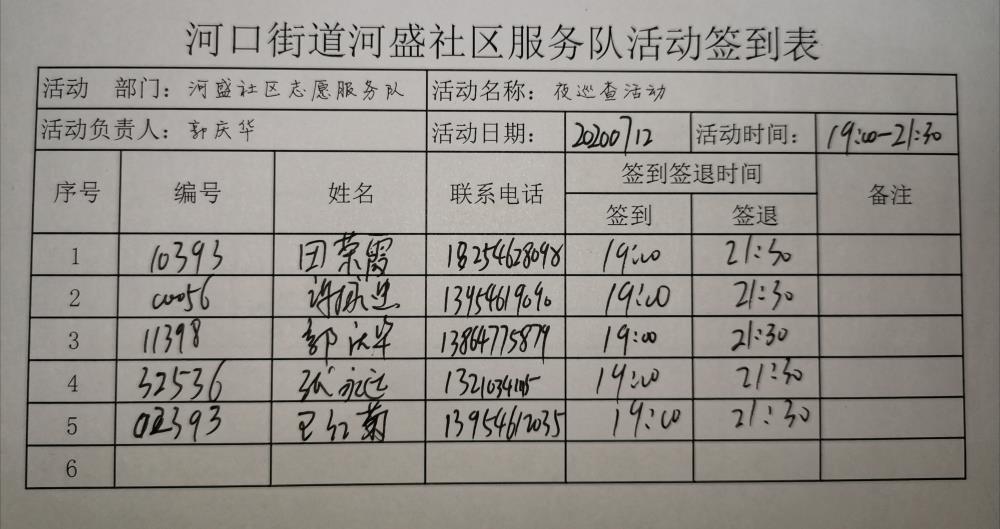 河口街道河盛社区服务队活动签到表
活动 部门：河盛社区志愿服务队 活动名称：夜巡查活动
活动负责人：郭庆华 活动日期：20200712 活动时间：19:00-21:30
序号 编号 姓名 联系电话 签到签退时间 备注
签到 签退
1 10393 田荣霞 18254628098 19:00 21:30
2 00056 13954619090 19:00 21:30
3 11398 郭庆华 13864775879 19:00 21:30
4 32536 张永远 19:00 21:30
5 02393 王红菊 13954612035 19:00 21:30
6